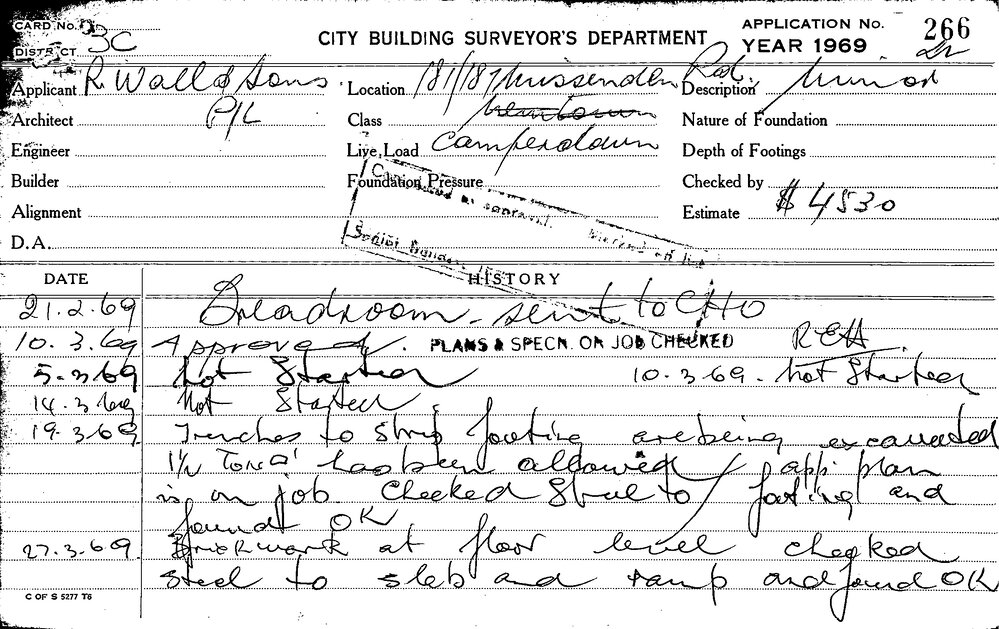 CARD No.
DISTRICT 3C
CITY BUILDING SURVEYOR'S DEPARTMENT
APPLICATION No. 266
YEAR 1969
Applicant R. Wall & Sons
P/L
Location 181/187 Missenden Rd.
Description Minor
Architect
Class Newtown
Nature of Foundation
Engineer
Live Load Camperdown
Depth of Footings
Builder
Foundation Pressure
Checked by
Alignment
Estimate $4530
D.A.
DATE HISTORY
21.2.69 Breadroom - sent to CHO
10.3.69 Approved. PLANS & SPECN. ON JOB CHECKED REH
5.3.69 Not Started 10.3.69. Not Started
14.3.69 Not Started
19.3.69 Trenches to Strip footing are being excavated
has been allowed / app. plan
is on job. Checked Steel to footing and
found OK
27.3.69. Brickwork at floor level checked
steel to slab and ramp and found OK
C OF S 5277 T8